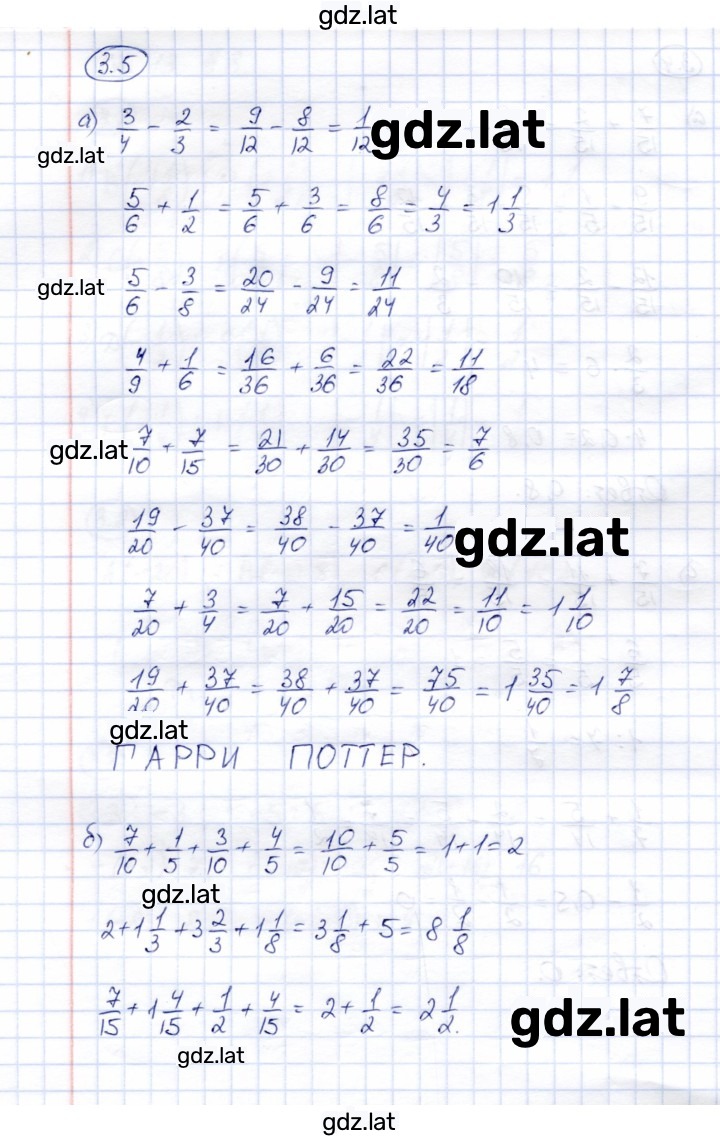 gdz.lat
3.5
а) 3/4 - 2/3 = 9/12 - 8/12 = 1/12 gdz.lat
gdz.lat
5/6 + 1/2 = 5/6 + 3/6 = 8/6 = 4/3 = 1 1/3
gdz.lat 5/6 - 3/8 = 20/24 - 9/24 = 11/24
4/9 + 1/6 = 16/36 + 6/36 = 22/36 = 11/18
gdz.lat 7/10 + 7/15 = 21/30 + 14/30 = 35/30 = 7/6
19/20 - 37/40 = 38/40 - 37/40 = 1/40 gdz.lat
7/20 + 3/4 = 7/20 + 15/20 = 22/20 = 11/10 = 1 1/10
19/20 + 37/40 = 38/40 + 37/40 = 75/40 = 1 35/40 = 1 7/8
gdz.lat
ГАРРИ ПОТТЕР.
б) 7/10 + 1/5 + 3/10 + 4/5 = 10/10 + 5/5 = 1+1=2
gdz.lat
2+1 1/3 + 3 2/3 + 1 1/8 = 3 1/8 + 5 = 8 1/8
7/15 + 1 4/15 + 1/2 + 4/15 = 2 + 1/2 = 2 1/2. gdz.lat
gdz.lat
gdz.lat